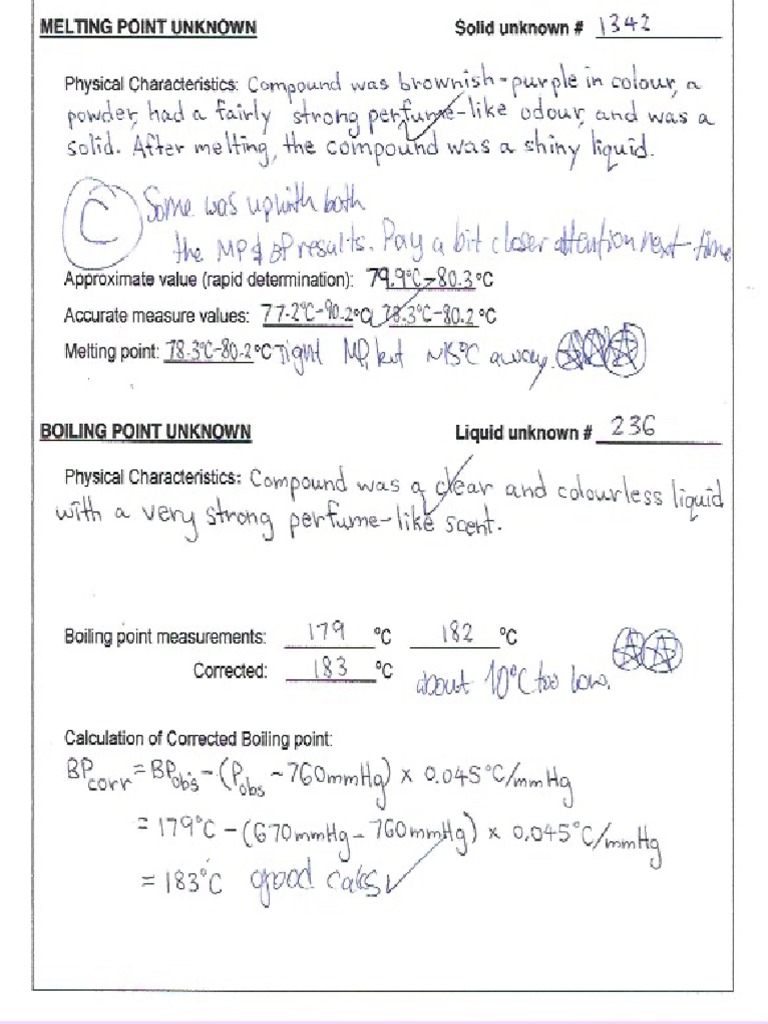 MELTING POINT UNKNOWN Solid unknown # 1342
Physical Characteristics: Compound was brownish-purple in colour, a
powder, had a fairly strong perfume-like odour, and was a
solid. After melting, the compound was a shiny liquid.
C Some was up with both
the MP & BP results. Pay a bit closer attention next time
Approximate value (rapid determination): 79.9°C-80.3°C
Accurate measure values: 77.2°C-90.2°C 78.3°C-80.2°C
Melting point: 78.3°C-80.2°C Tight MP, but ~15°C away.
BOILING POINT UNKNOWN Liquid unknown # 236
Physical Characteristics: Compound was a clear and colourless liquid
with a very strong perfume-like scent.
Boiling point measurements: 179 °C 182 °C
Corrected: 183 °C about 10°C too low.
Calculation of Corrected Boiling point:
BPcorr = BPobs - (Pobs - 760mmHg) x 0.045°C/mmHg
= 179°C - (670mmHg - 760mmHg) x 0.045°C/mmHg
= 183°C good calcs